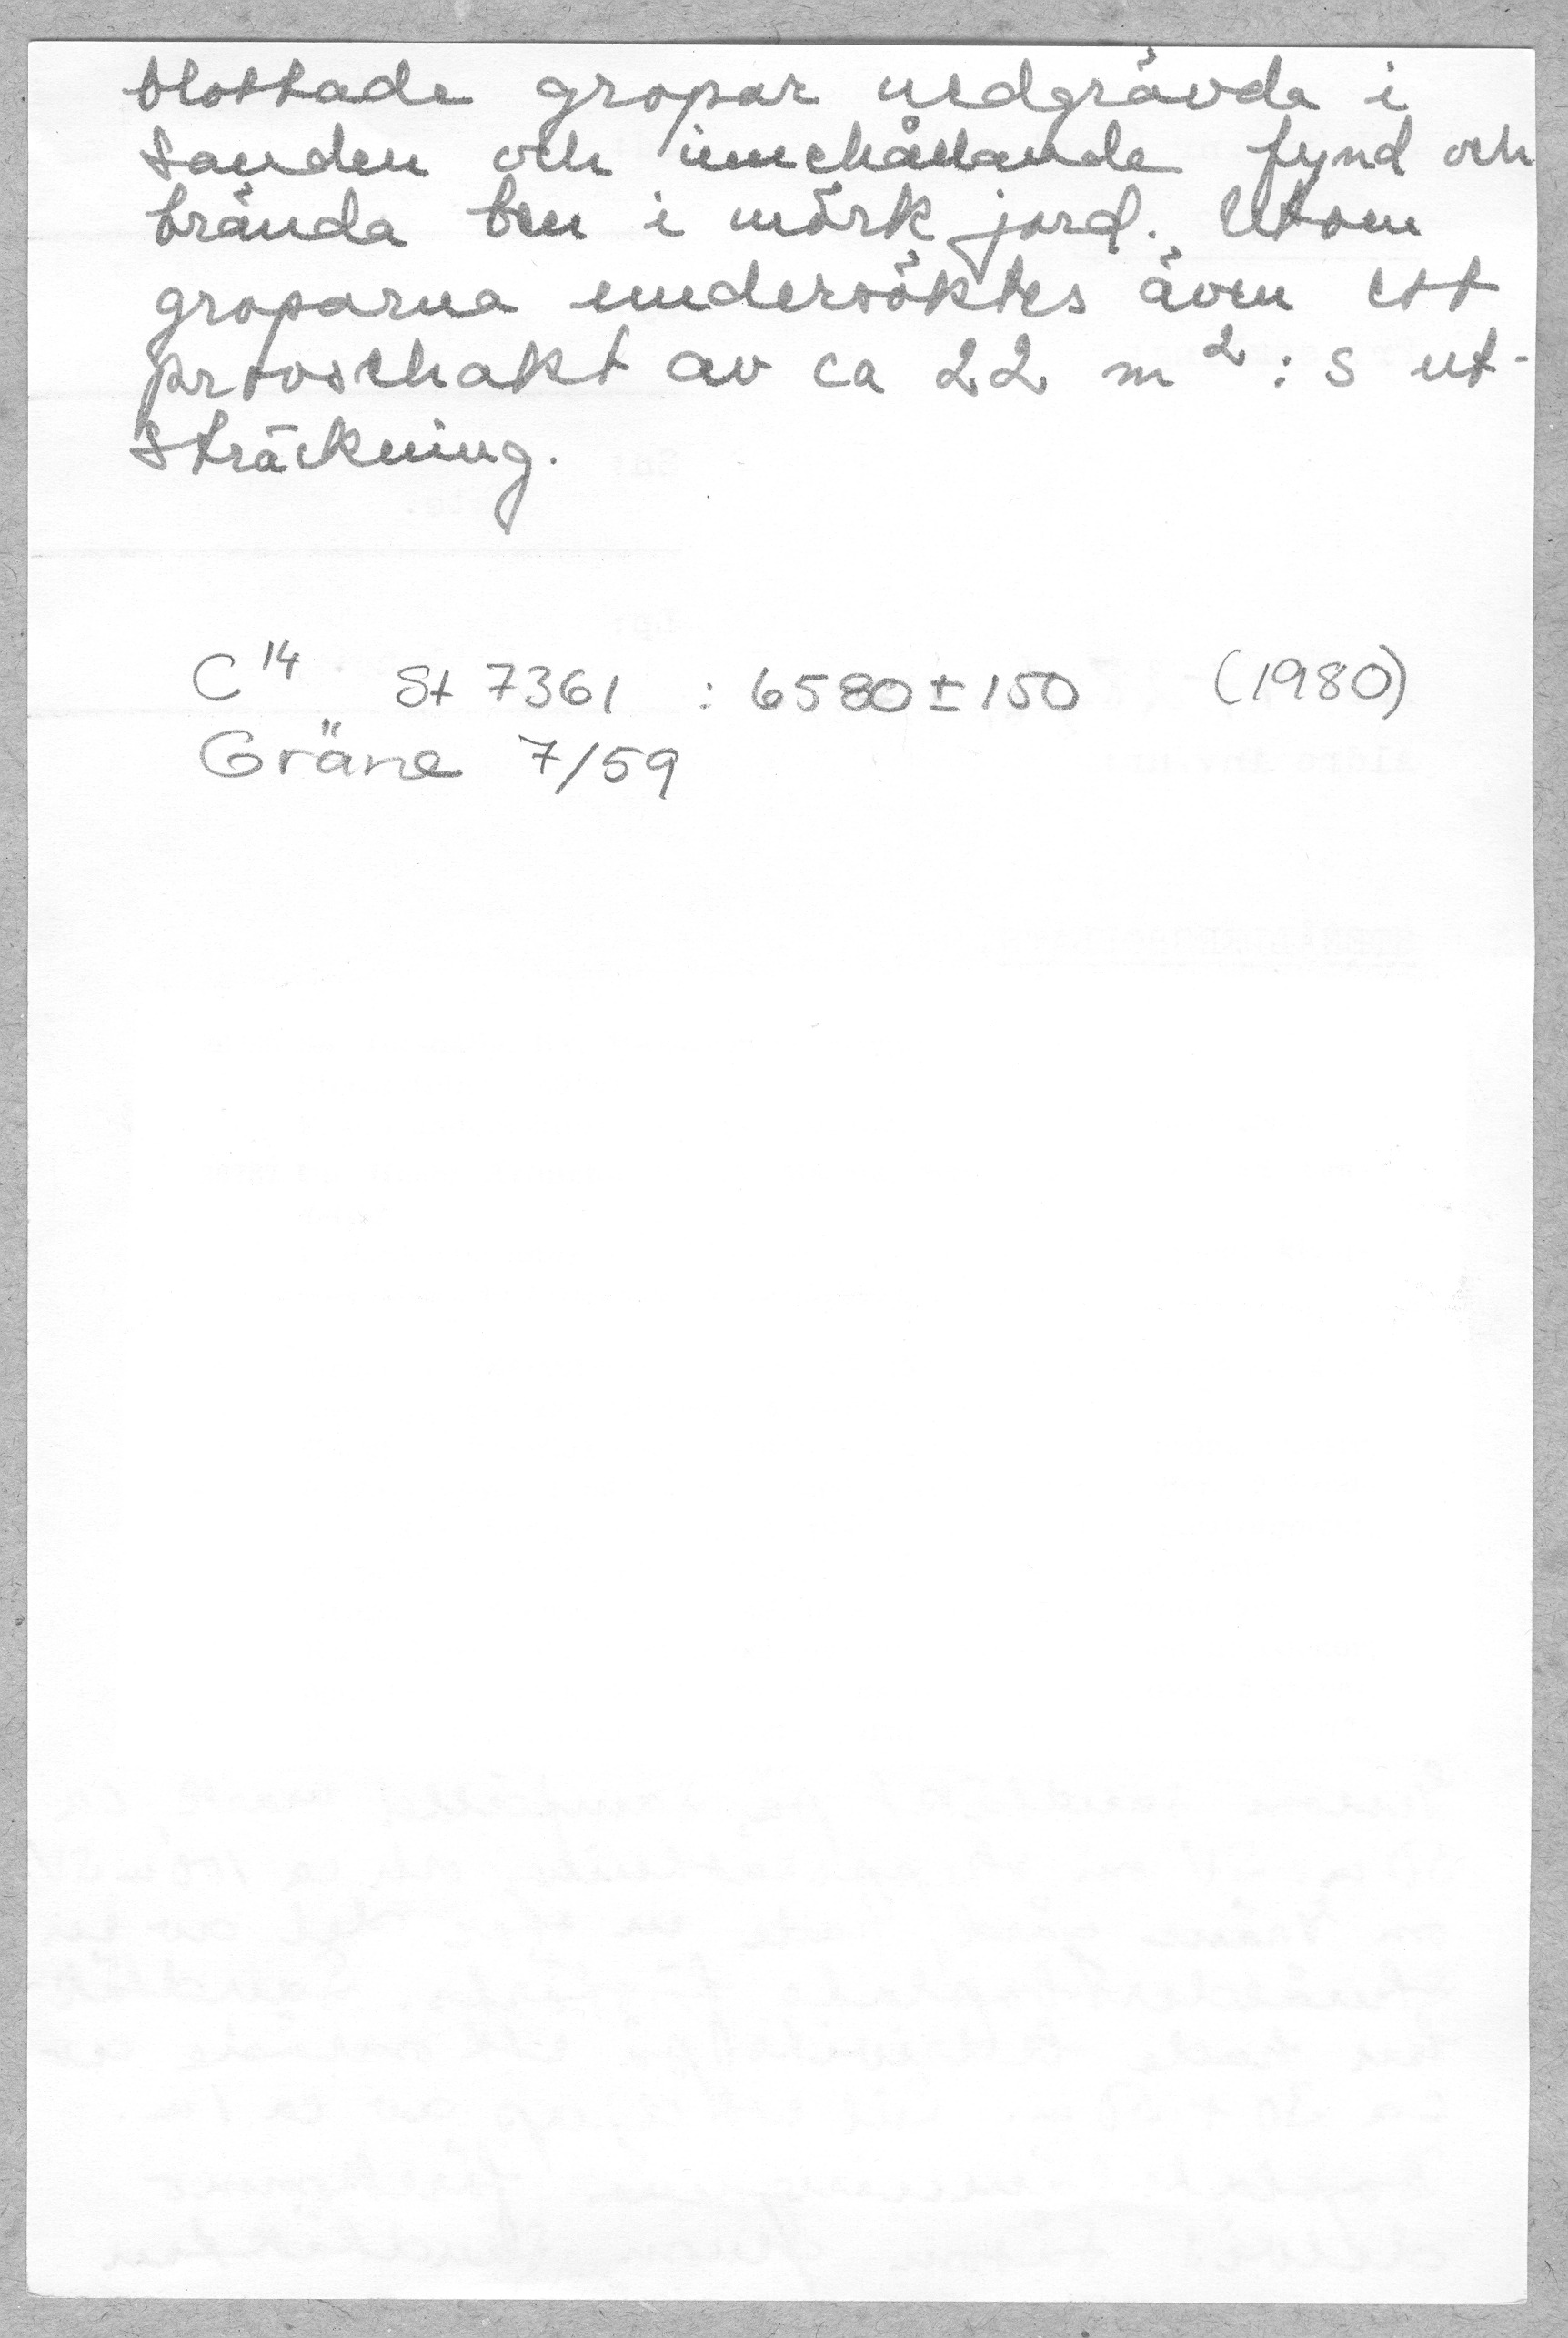 blottade gropar nedgrävda i
sanden och innehållande fynd och
brända ben i mörk jord. Utom
groparna undersöktes även ett
provschakt av ca 22 m²:s ut-
sträckning.
C¹⁴ St 7361 : 6580±150 (1980)
Gräne 7/59